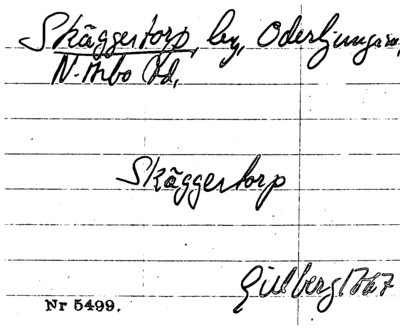 Skäggertorp, by, Oderljunga sn,
N. Åsbo hd,
Skäggertorp
Gillberg 1767
Nr 5499.